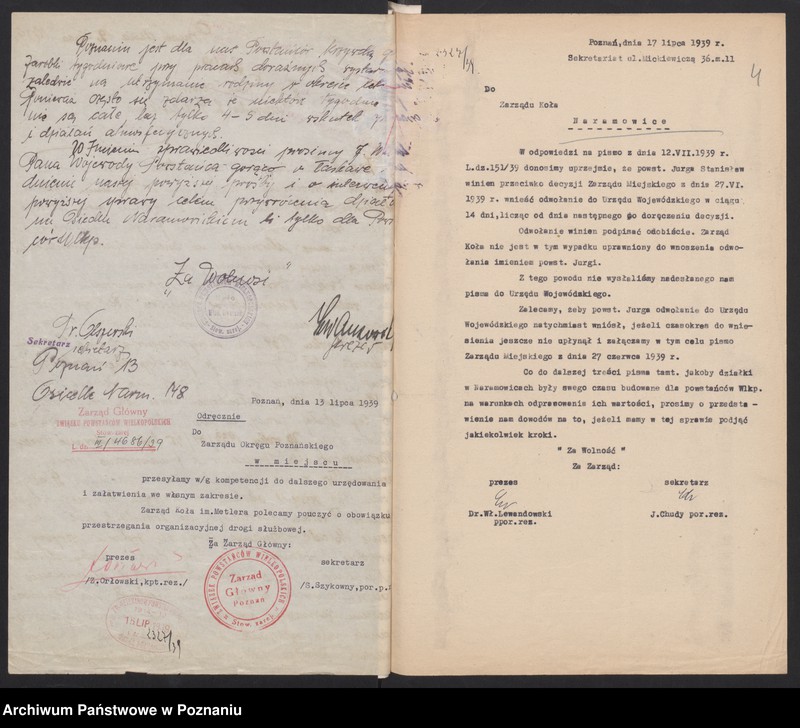 Poznanin jest dla nas Powstańców krzywdą
zarobki tygodniowe przy pracach doraźnych
zaledwie na utrzymanie rodziny w okresie
Ponieważ często się zdarza że niektóre tygodnie
są całe lub tylko 4-5 dni wskutek
i działań atmosferycznych.
W Imieniu sprawiedliwości prosimy
Pana Wojewody Powstańca gorąco o łaskawe
naszej powyższej prośby i o
powyższej sprawy celem przywrócenia
Osiedlu Naramowickiem li tylko dla
ców Wlkp.
"Za Wolność"
Sekretarz
Poznań 13
Osiedle Naram. 148
Zarząd Główny
ZWIĄZKU POWSTAŃCÓW WIELKOPOLSKICH
L. dz. II/4686/39
Poznań, dnia 13 lipca 1939
Odręcznie
Do
Zarządu Okręgu Poznańskiego
w miejscu
przesyłamy w/g kompetencji do dalszego urzędowania
i załatwienia we własnym zakresie.
Zarząd Koła im.Metlera polecamy pouczyć o obowiązku
przestrzegania organizacyjnej drogi służbowej.
Za Zarząd Główny:
prezes
sekretarz
/Z.Orłowski,kpt.rez./
/S.Szykowny,por.p.
ZWIĄZEK POWSTAŃCÓW WIELKOPOLSKICH
Zarząd
Główny
Poznań
Stow. zarej.
15 LIP.
2327/39
2327/39
Poznań,dnia 17 lipca 1939 r.
Sekretariat ul.Mickiewicza 36.m.11
4
Do
Zarządu Koła
Naramowice
W odpowiedzi na pismo z dnia 12.VII.1939 r.
L.dz.151/39 donosimy uprzejmie, że powst. Jurga Stanisław
winien przeciwko decyzji Zarządu Miejskiego z dnia 27.VI.
1939 r. wnieść odwołanie do Urzędu Wojewódzkiego w ciągu
14 dni,licząc od dnia następnego po doręczeniu decyzji.
Odwołanie winien podpisać osobiście. Zarząd
Koła nie jest w tym wypadku uprawniony do wnoszenia odwo-
łania imieniem powst. Jurgi.
Z tego powodu nie wysłaliśmy nadesłanego nam
pisma do Urzędu Wojewódzkiego.
Zalecamy, żeby powst. Jurga odwołanie do Urzędu
Wojewódzkiego natychmiast wniósł, jeżeli czasokres do wnie-
sienia jeszcze nie upłynął i załączamy w tym celu pismo
Zarządu Miejskiego z dnia 27 czerwca 1939 r.
Co do dalszej treści pisma tamt. jakoby działki
w Naramowicach były swego czasu budowane dla powstańców Wlkp.
na warunkach odpracowania ich wartości, prosimy o przedsta -
wienie nam dowodów na to, jeżeli mamy w tej sprawie podjąć
jakiekolwiek kroki.
"Za Wolność"
Za Zarząd:
prezes
sekretarz
Dr.Wł.Lewandowski
ppor.rez.
J.Chudy por.rez.
Archiwum Państwowe w Poznaniu